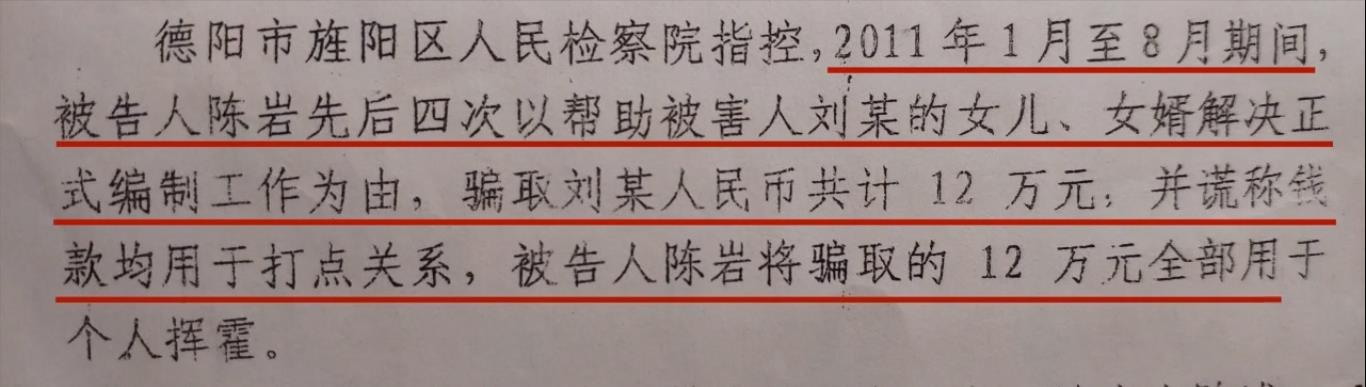 德阳市旌阳区人民检察院指控,2011年1月至8月期间,
被告人陈岩先后四次以帮助被害人刘某的女儿、女婿解决正
式编制工作为由，骗取刘某人民币共计 12 万元，并谎称钱
款均用于打点关系，被告人陈岩将骗取的 12 万元全部用于
个人挥霍。